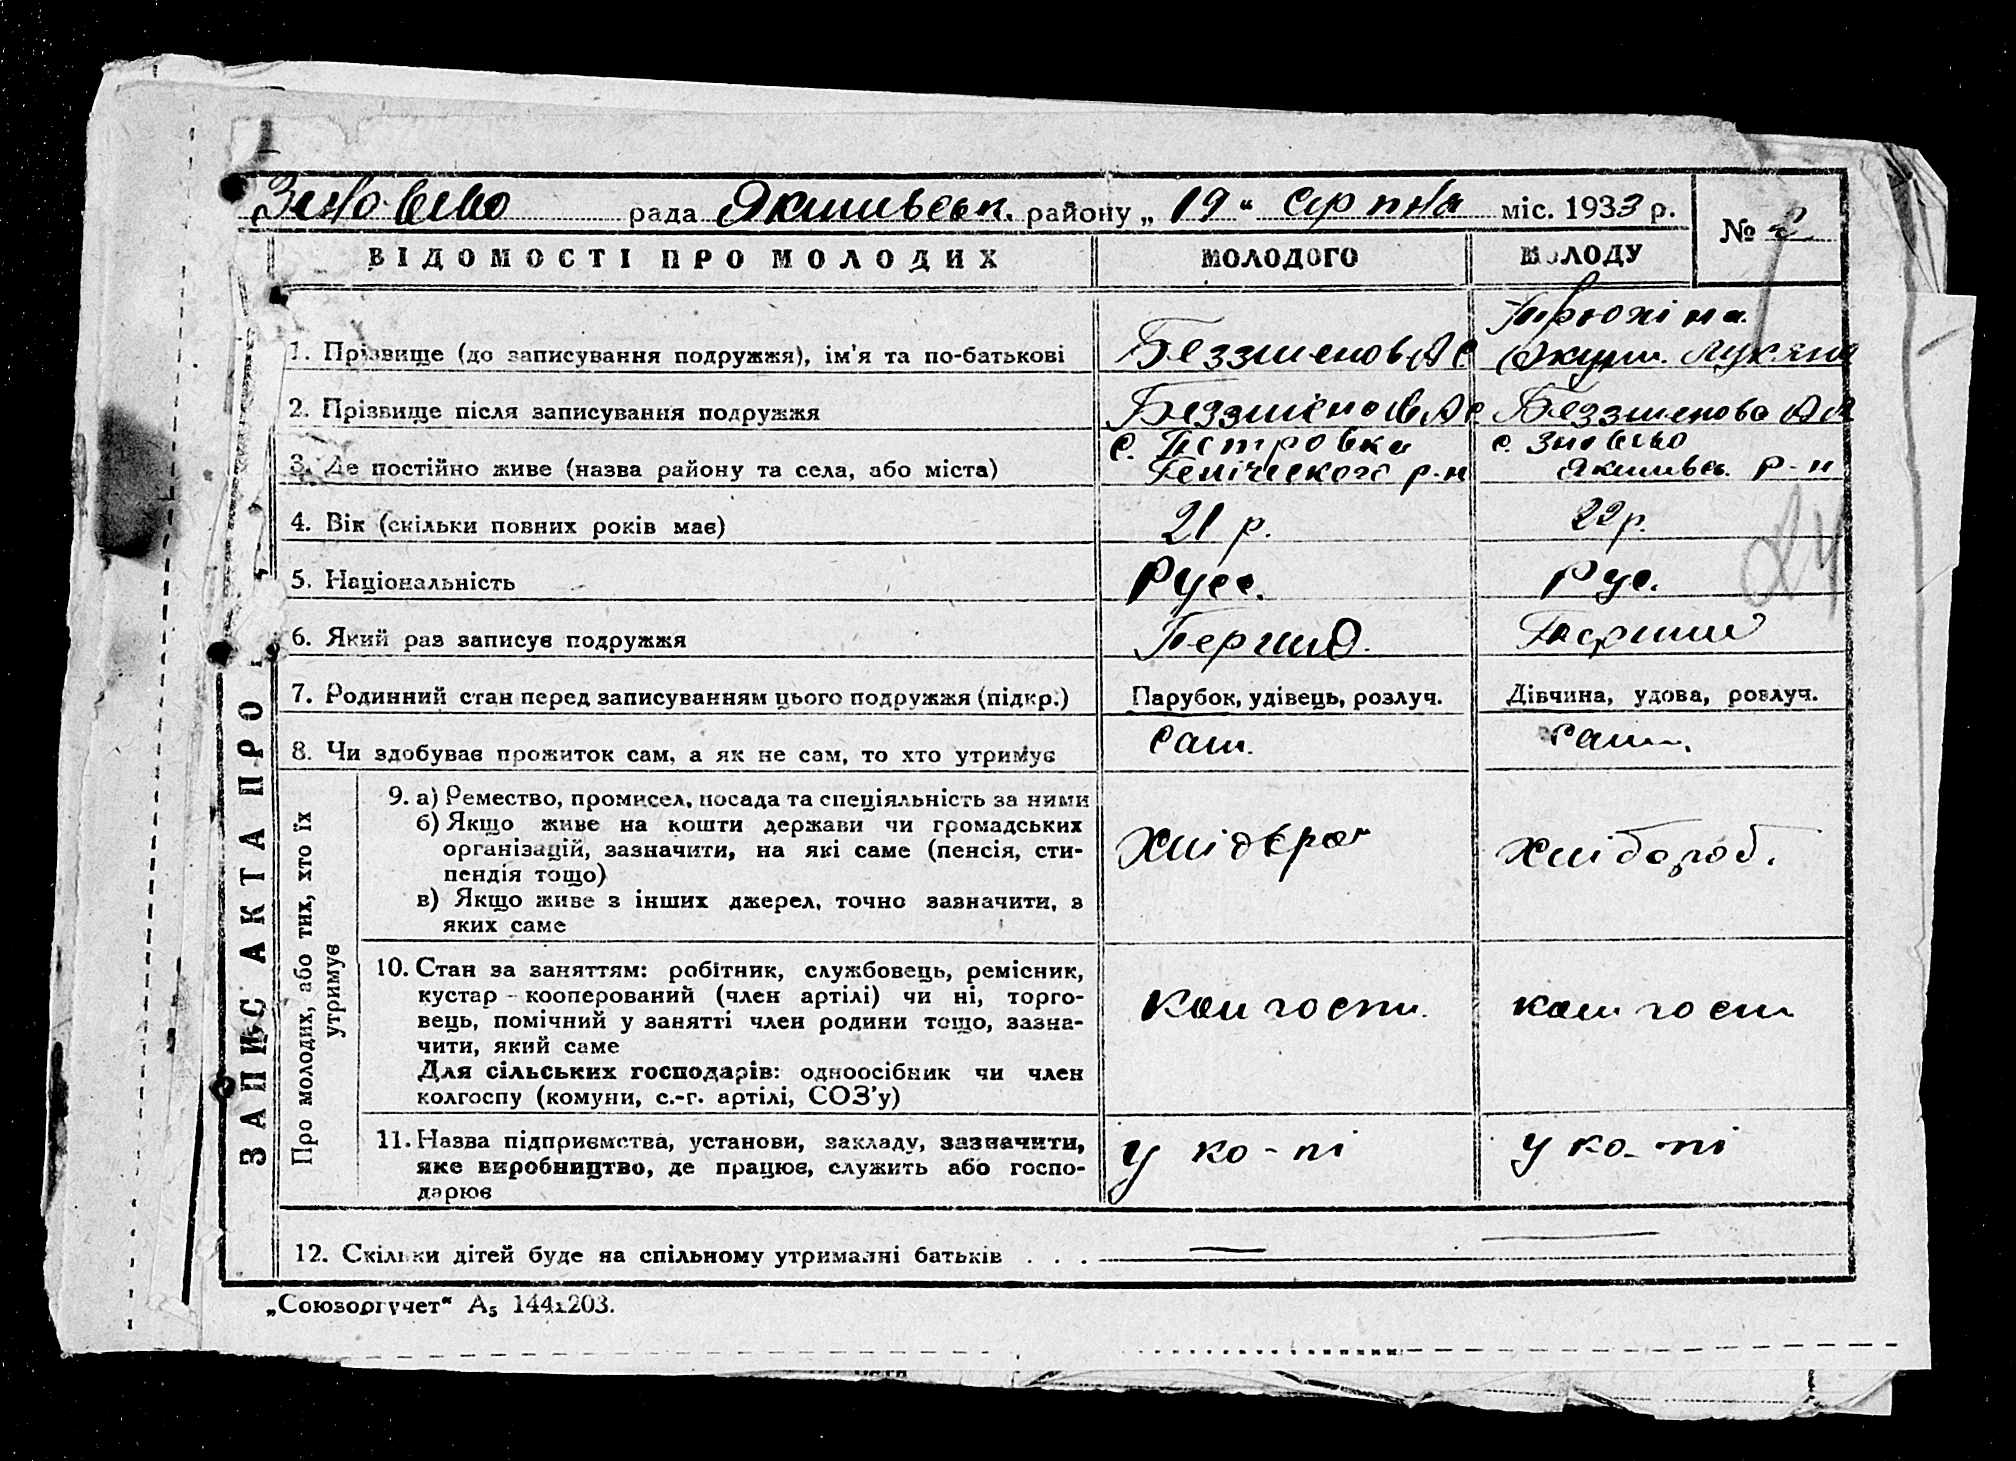 рада Якимівськ. району „ 19 “ серпня міс. 1933 р.
№ 2
ВІДОМОСТІ ПРО МОЛОДИХ МОЛОДОГО МОЛОДУ
Трюхіна
1. Прізвище (до записування подружжя), ім'я та по-батькові Беззменов А С Лукяна
2. Прізвище після записування подружжя Беззменов А С Беззменова
с. Петровка
с.
3. Де постійно живе (назва району та села, або міста) Геніческого р-н р-н
4. Вік (скільки повних років має) 21 р. 22 р.
5. Національність Русс. Рус.
6. Який раз записує подружжя
7. Родинний стан перед записуванням цього подружжя (підкр.) Парубок, удівець, розлуч. Дівчина, удова, розлуч.
8. Чи здобуває прожиток сам, а як не сам, то хто утримує сам. сам.
9. а) Ремество, промисел, посада та спеціяльність за ними
б) Якщо живе на кошти держави чи громадських
організацій, зазначити, на які саме (пенсія, сти-
пендія тощо)
в) Якщо живе з інших джерел, точно зазначити, з
яких саме
хлібороб.
10. Стан за заняттям: робітник, службовець, ремісник,
кустар - кооперований (член артілі) чи ні, торго-
вець, помічний у занятті член родини тощо, зазна-
чити, який саме
Для сільських господарів: одноосібник чи член
колгоспу (комуни, с.-г. артілі, СОЗ'у)
11. Назва підприємства, установи, закладу, зазначити,
яке виробництво, де працює, служить або госпо-
дарює
у ко-пі у ко-пі
12. Скільки дітей буде на спільному утриманні батьків . . .
ЗАПИС АКТА ПРО
Про молодих, або тих, хто їх
утримує
„Союзоргучет“ А₅ 144х203.
24